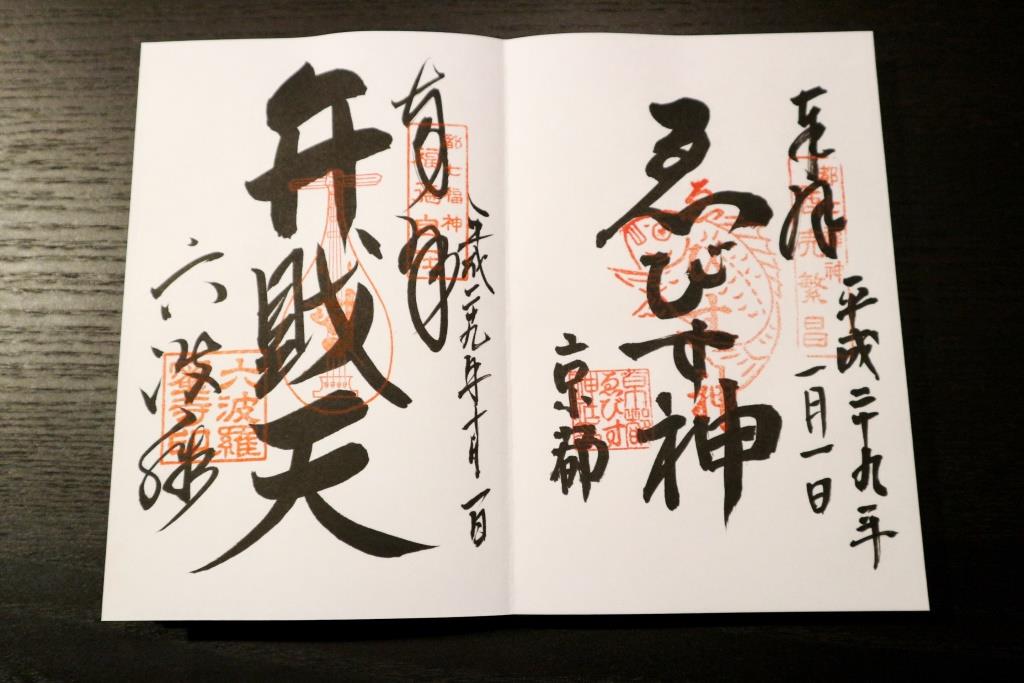 奉拝
平成二十九年
一月一日
ゑびす神
京都
都七福神
商売繁昌
京都
ゑびす
神社
奉拝
平成二十九年十月一日
都七福神
弁財天
六波羅
六波羅